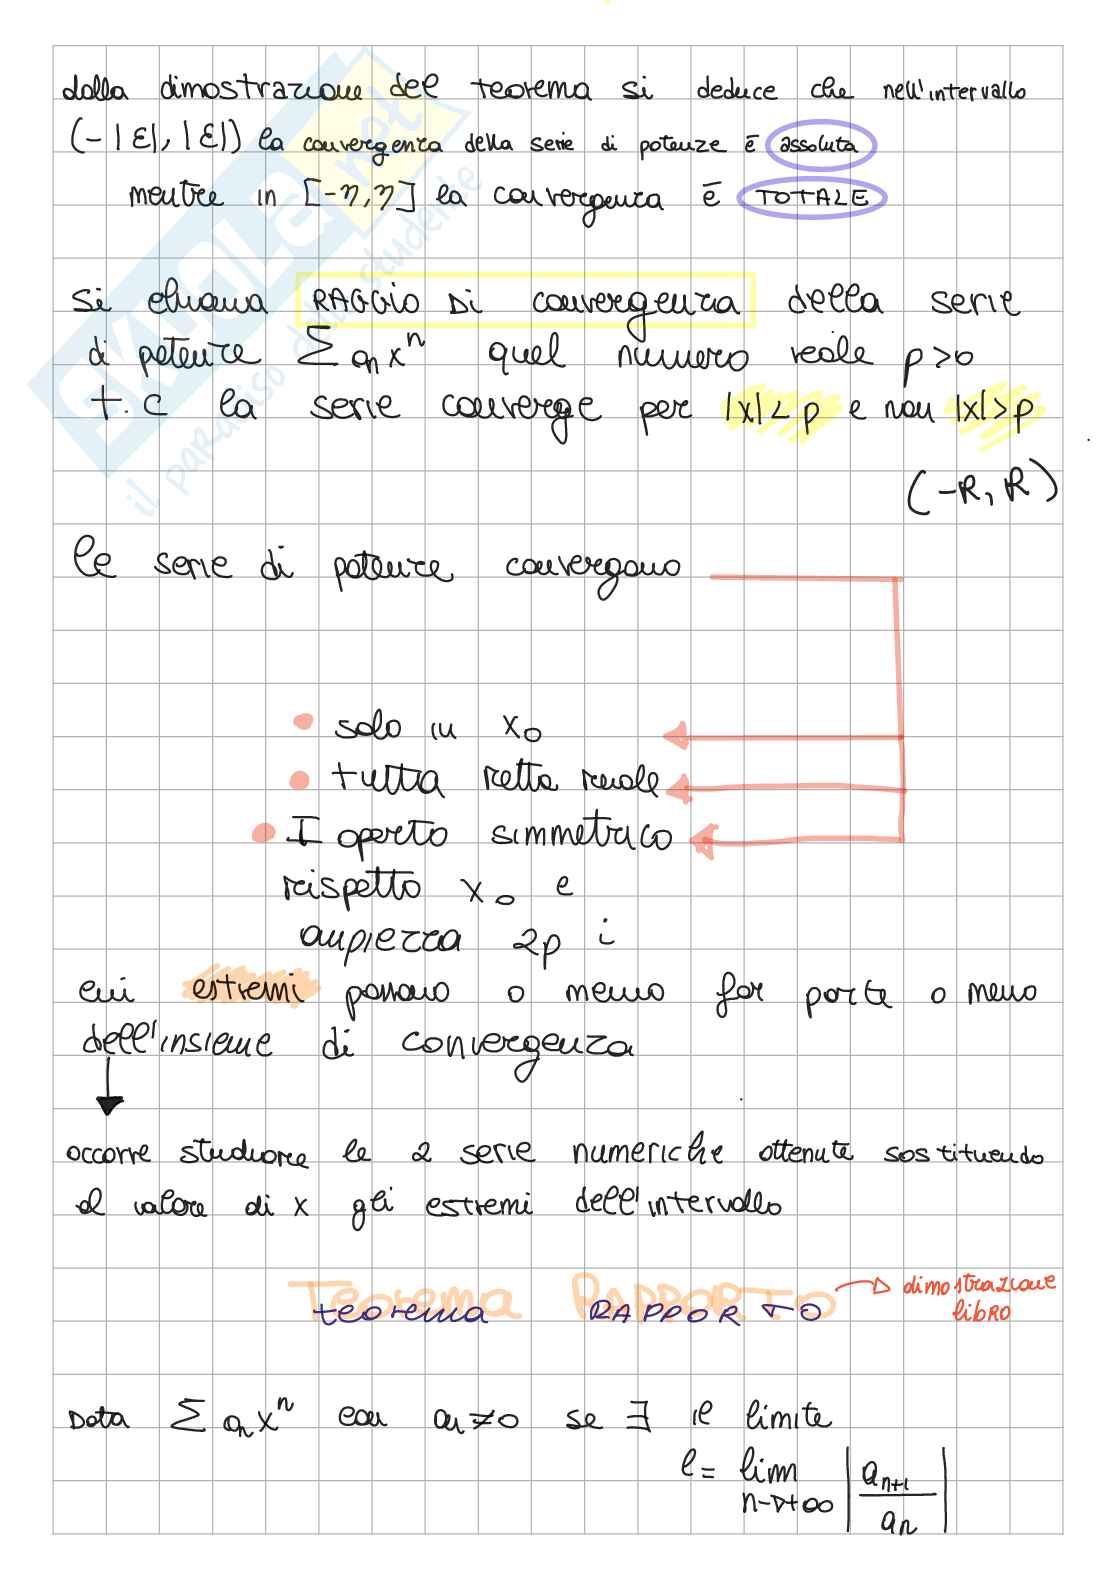 dalla dimostrazione del teorema si deduce che nell'intervallo
(-|ξ|, |ξ|) la convergenza della serie di potenze è assoluta
mentre in [-η, η] la convergenza è TOTALE
si chiama RAGGIO DI convergenza della serie
di potenze ∑ aₙxⁿ quel numero reale ρ>0
t.c la serie converge per |x|<ρ e non |x|>ρ
(-R, R)
le serie di potenze convergono
• solo in x₀
• tutta retta reale
• I aperto simmetrico
rispetto x₀ e
ampiezza 2ρ i
cui estremi possono o meno far parte o meno
dell'insieme di convergenza
occorre studiare le 2 serie numeriche ottenute sostituendo
al valore di x gli estremi dell'intervallo
Teorema RAPPORTO → dimostrazione
libro
teorema RAPPORTO
Data ∑ aₙxⁿ con aₙ≠0 se ∃ il limite
l = lim n→+∞ |aₙ₊₁ / aₙ|
SKUOLA.net
il paradiso dello studente